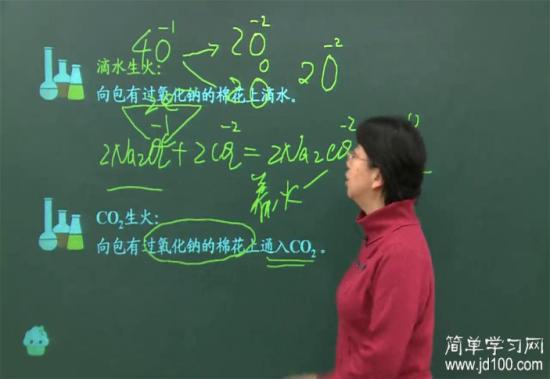 4O⁻¹ → 2O⁻²
2O⁰ 2O⁻²
滴水生火:
向包有过氧化钠的棉花上滴水。
-1 -2 -2
2Na₂O₂+2CO₂=2Na₂CO₃
着火
CO₂生火:
向包有过氧化钠的棉花上通入CO₂。
简单学习网
www.jd100.com